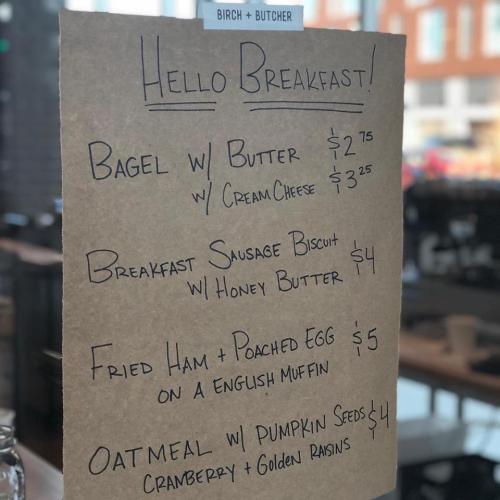 BIRCH + BUTCHER
HELLO BREAKFAST!
BAGEL W/ BUTTER $2 75
W/ CREAM CHEESE $3 25
BREAKFAST SAUSAGE BISCUIT $4
W/ HONEY BUTTER
FRIED HAM + POACHED EGG $5
ON A ENGLISH MUFFIN
OATMEAL W/ PUMPKIN SEEDS $4
CRANBERRY + Golden RAISINS